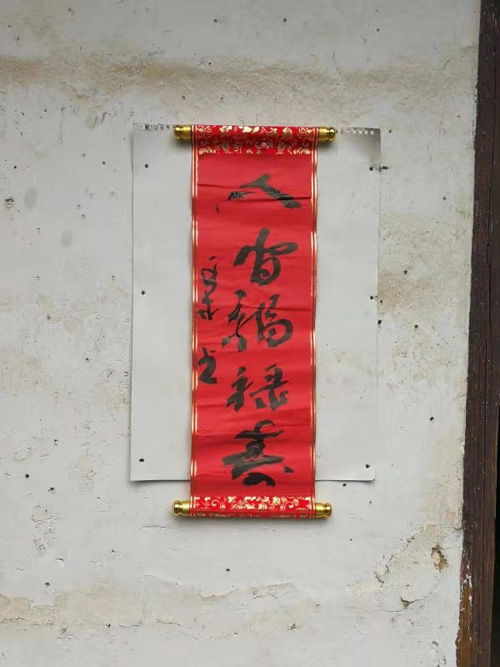 人间福禄寿